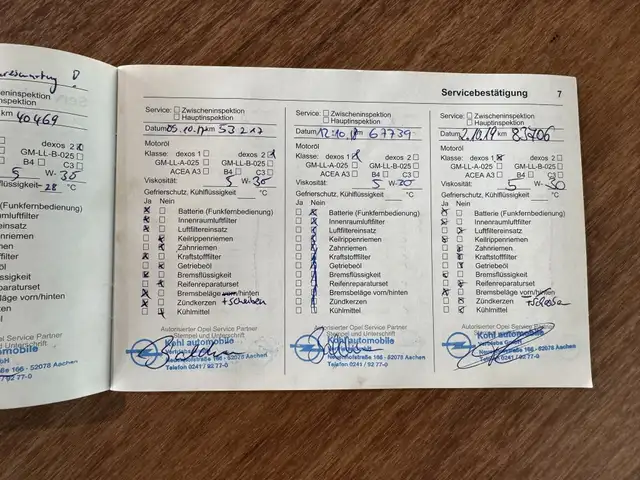 Servicebestätigung 7
km 40469
dexos 2
GM-LL-B-025
B4 C3
5 W- 30
-28 °C
Service: Zwischeninspektion
Hauptinspektion
Datum 05.10.17 km 53217
Motoröl
Klasse: dexos 1 dexos 2
GM-LL-A-025 GM-LL-B-025
ACEA A3 B4 C3
Viskosität: 5 W- 30
Gefrierschutz, Kühlflüssigkeit °C
Ja Nein
Batterie (Funkfernbedienung)
Innenraumluftfilter
Luftfiltereinsatz
Keilrippenriemen
Zahnriemen
Kraftstofffilter
Getriebeöl
Bremsflüssigkeit
Reifenreparaturset
Bremsbeläge vorn/hinten
Zündkerzen +scheiben
Kühlmittel
Autorisierter Opel Service Partner
Stempel und Unterschrift
Kohl automobile
52078 Aachen
Telefon 0241 / 92 77-0
Service: Zwischeninspektion
Hauptinspektion
Datum 12.10.18 km 67739
Motoröl
Klasse: dexos 1 dexos 2
GM-LL-A-025 GM-LL-B-025
ACEA A3 B4 C3
Viskosität: 5 W-
Gefrierschutz, Kühlflüssigkeit °C
Ja Nein
Batterie (Funkfernbedienung)
Innenraumluftfilter
Luftfiltereinsatz
Keilrippenriemen
Zahnriemen
Kraftstofffilter
Getriebeöl
Bremsflüssigkeit
Reifenreparaturset
Bremsbeläge vorn/hinten
Zündkerzen
Kühlmittel
Autorisierter Opel Service Partner
Stempel und Unterschrift
Kohl automobile
52078 Aachen
Telefon 0241 / 92 77-0
Service: Zwischeninspektion
Hauptinspektion
Datum 2.10.19 km 83706
Motoröl
Klasse: dexos 1 dexos 2
GM-LL-A-025 GM-LL-B-025
ACEA A3 B4 C3
Viskosität: 5 W- 30
Gefrierschutz, Kühlflüssigkeit °C
Ja Nein
Batterie (Funkfernbedienung)
Innenraumluftfilter
Luftfiltereinsatz
Keilrippenriemen
Zahnriemen
Kraftstofffilter
Getriebeöl
Bremsflüssigkeit
Reifenreparaturset
Bremsbeläge vorn/hinten
Zündkerzen
Kühlmittel
Autorisierter Opel Service Partner
Stempel und Unterschrift
Kohl automobile
Vertriebs GmbH
52078 Aachen
Telefon 0241 / 92 77-0